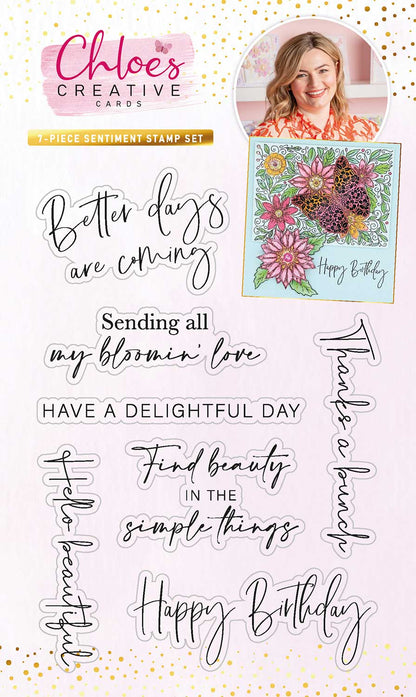 Chloes
CREATIVE
CARDS
7-PIECE SENTIMENT STAMP SET
Better days
are coming
Happy Birthday
Sending all
my bloomin' love
Thanks a bunch
HAVE A DELIGHTFUL DAY
Find beauty
IN THE
simple things
Hello beautiful
Happy Birthday